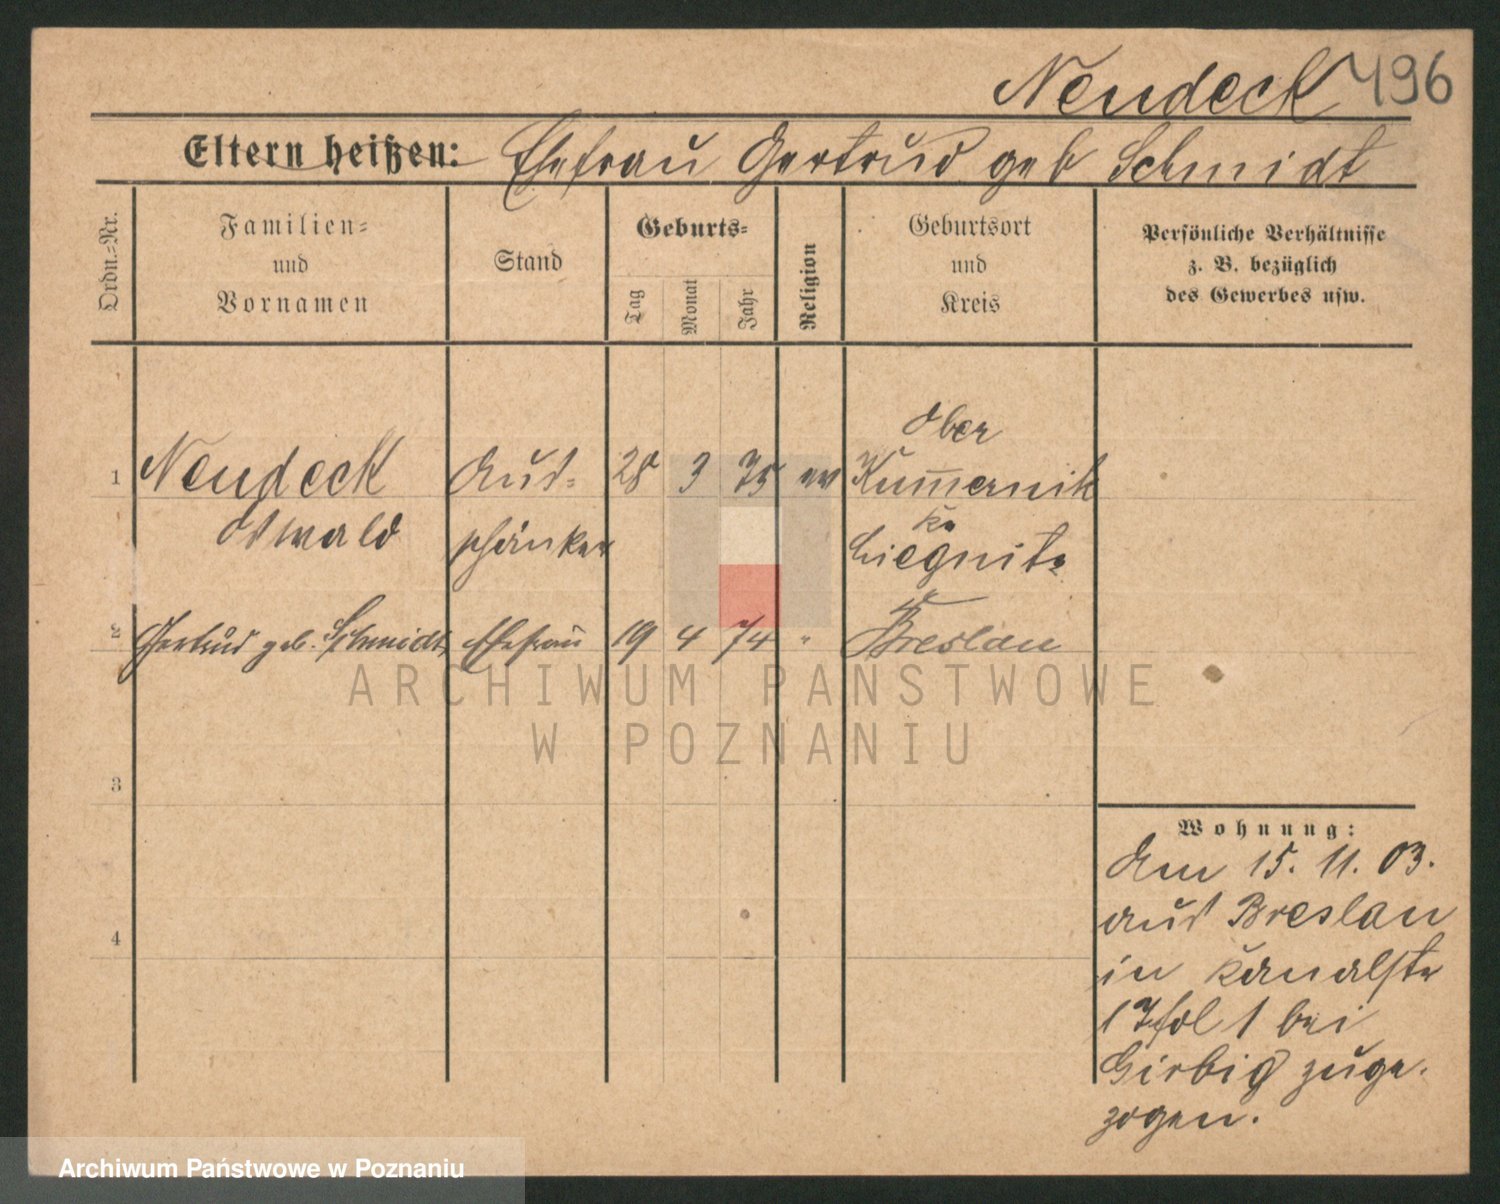 Neudeck 496
Eltern heißen: Ehefrau Gertrud geb Schmidt
Ordn.-Nr.
Familien-
und
Vornamen
Stand
Geburts-
Tag
Monat
Jahr
Religion
Geburtsort
und
Kreis
Persönliche Verhältnisse
z. B. bezüglich
des Gewerbes usw.
Ober
1 Neudeck Aus- 28 3 75 ev Kum̅ernik
Oswald schänker Kr
Liegnitz
2 Gertrud geb. Schmidt Ehefrau 19 4 74 " Breslau
ARCHIWUM PAŃSTWOWE
W POZNANIU
3
Wohnung:
Am 15. 11. 03.
aus Breslau
4
in Kanalstr
17 1 bei
Girbig zuge-
zogen.
Archiwum Państwowe w Poznaniu